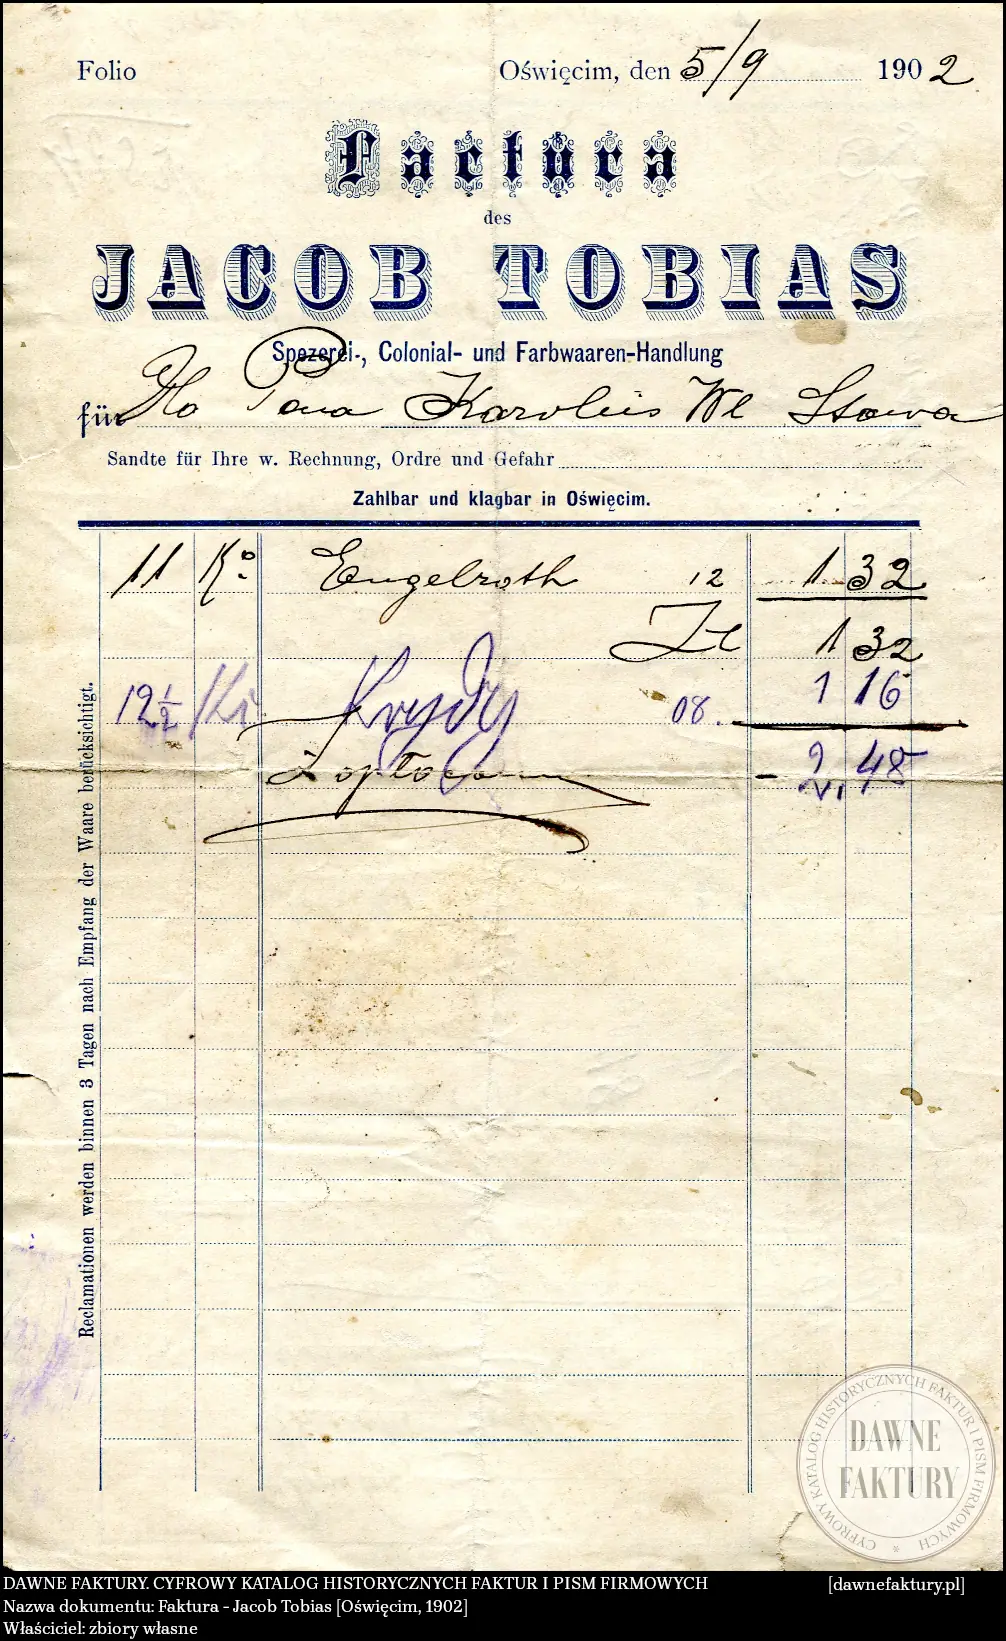 Folio
Oświęcim, den 5/9 1902
Factura
des
JACOB TOBIAS
Spezerei-, Colonial- und Farbwaaren-Handlung
für Pana Karolius Wł
Sandte für Ihre w. Rechnung, Ordre und Gefahr
Zahlbar und klagbar in Oświęcim.
11 Ko Engelroth 12 1 32
1 32
12½ Ko Krydy 08. 1 16
2 48
Reclamationen werden binnen 3 Tagen nach Empfang der Waare berücksichtigt.
CYFROWY KATALOG HISTORYCZNYCH FAKTUR I PISM FIRMOWYCH *
DAWNE
FAKTURY
DAWNE FAKTURY. CYFROWY KATALOG HISTORYCZNYCH FAKTUR I PISM FIRMOWYCH [dawnefaktury.pl]
Nazwa dokumentu: Faktura - Jacob Tobias [Oświęcim, 1902]
Właściciel: zbiory własne